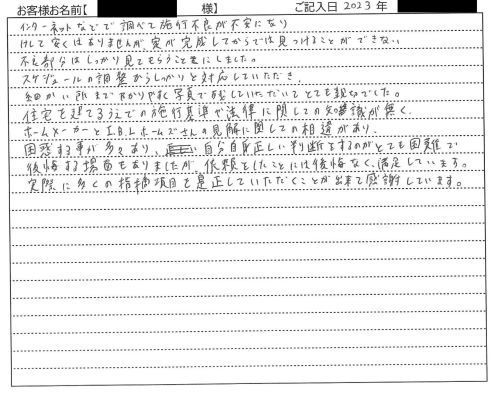 お客様お名前【 様】 ご記入日 2023 年
インターネットなどで調べて施行不良が不安になり
けして安くはありませんが家が完成してからでは見つけることができない
不良部分はしっかり見てもらう事にしました。
スケジュールの調整からしっかりと対応していただき、
細かい所まで分かりやすく写真で残していただいてとても親切でした。
住宅を建てるうえでの施行基準や法律に関しての知識が無く、
ホームメーカーとI.B.Lホームズさんの見解に関しての相違があり、
困惑する事が多々あり、自分自身正しい判断をするのがとても困難で
後悔する場面もありましたが、依頼をしたことには後悔なく、満足しています。
実際に多くの指摘項目を是正していただくことが出来て感謝しています。